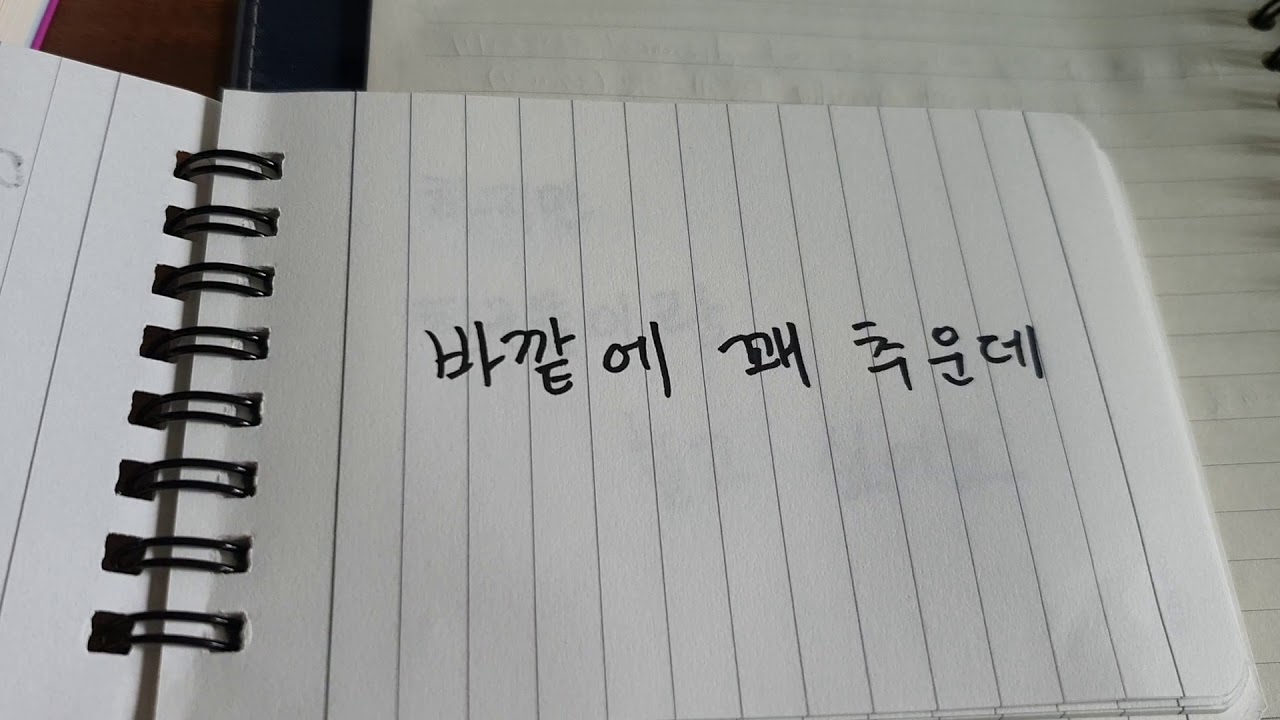 바깥에 꽤 추운데